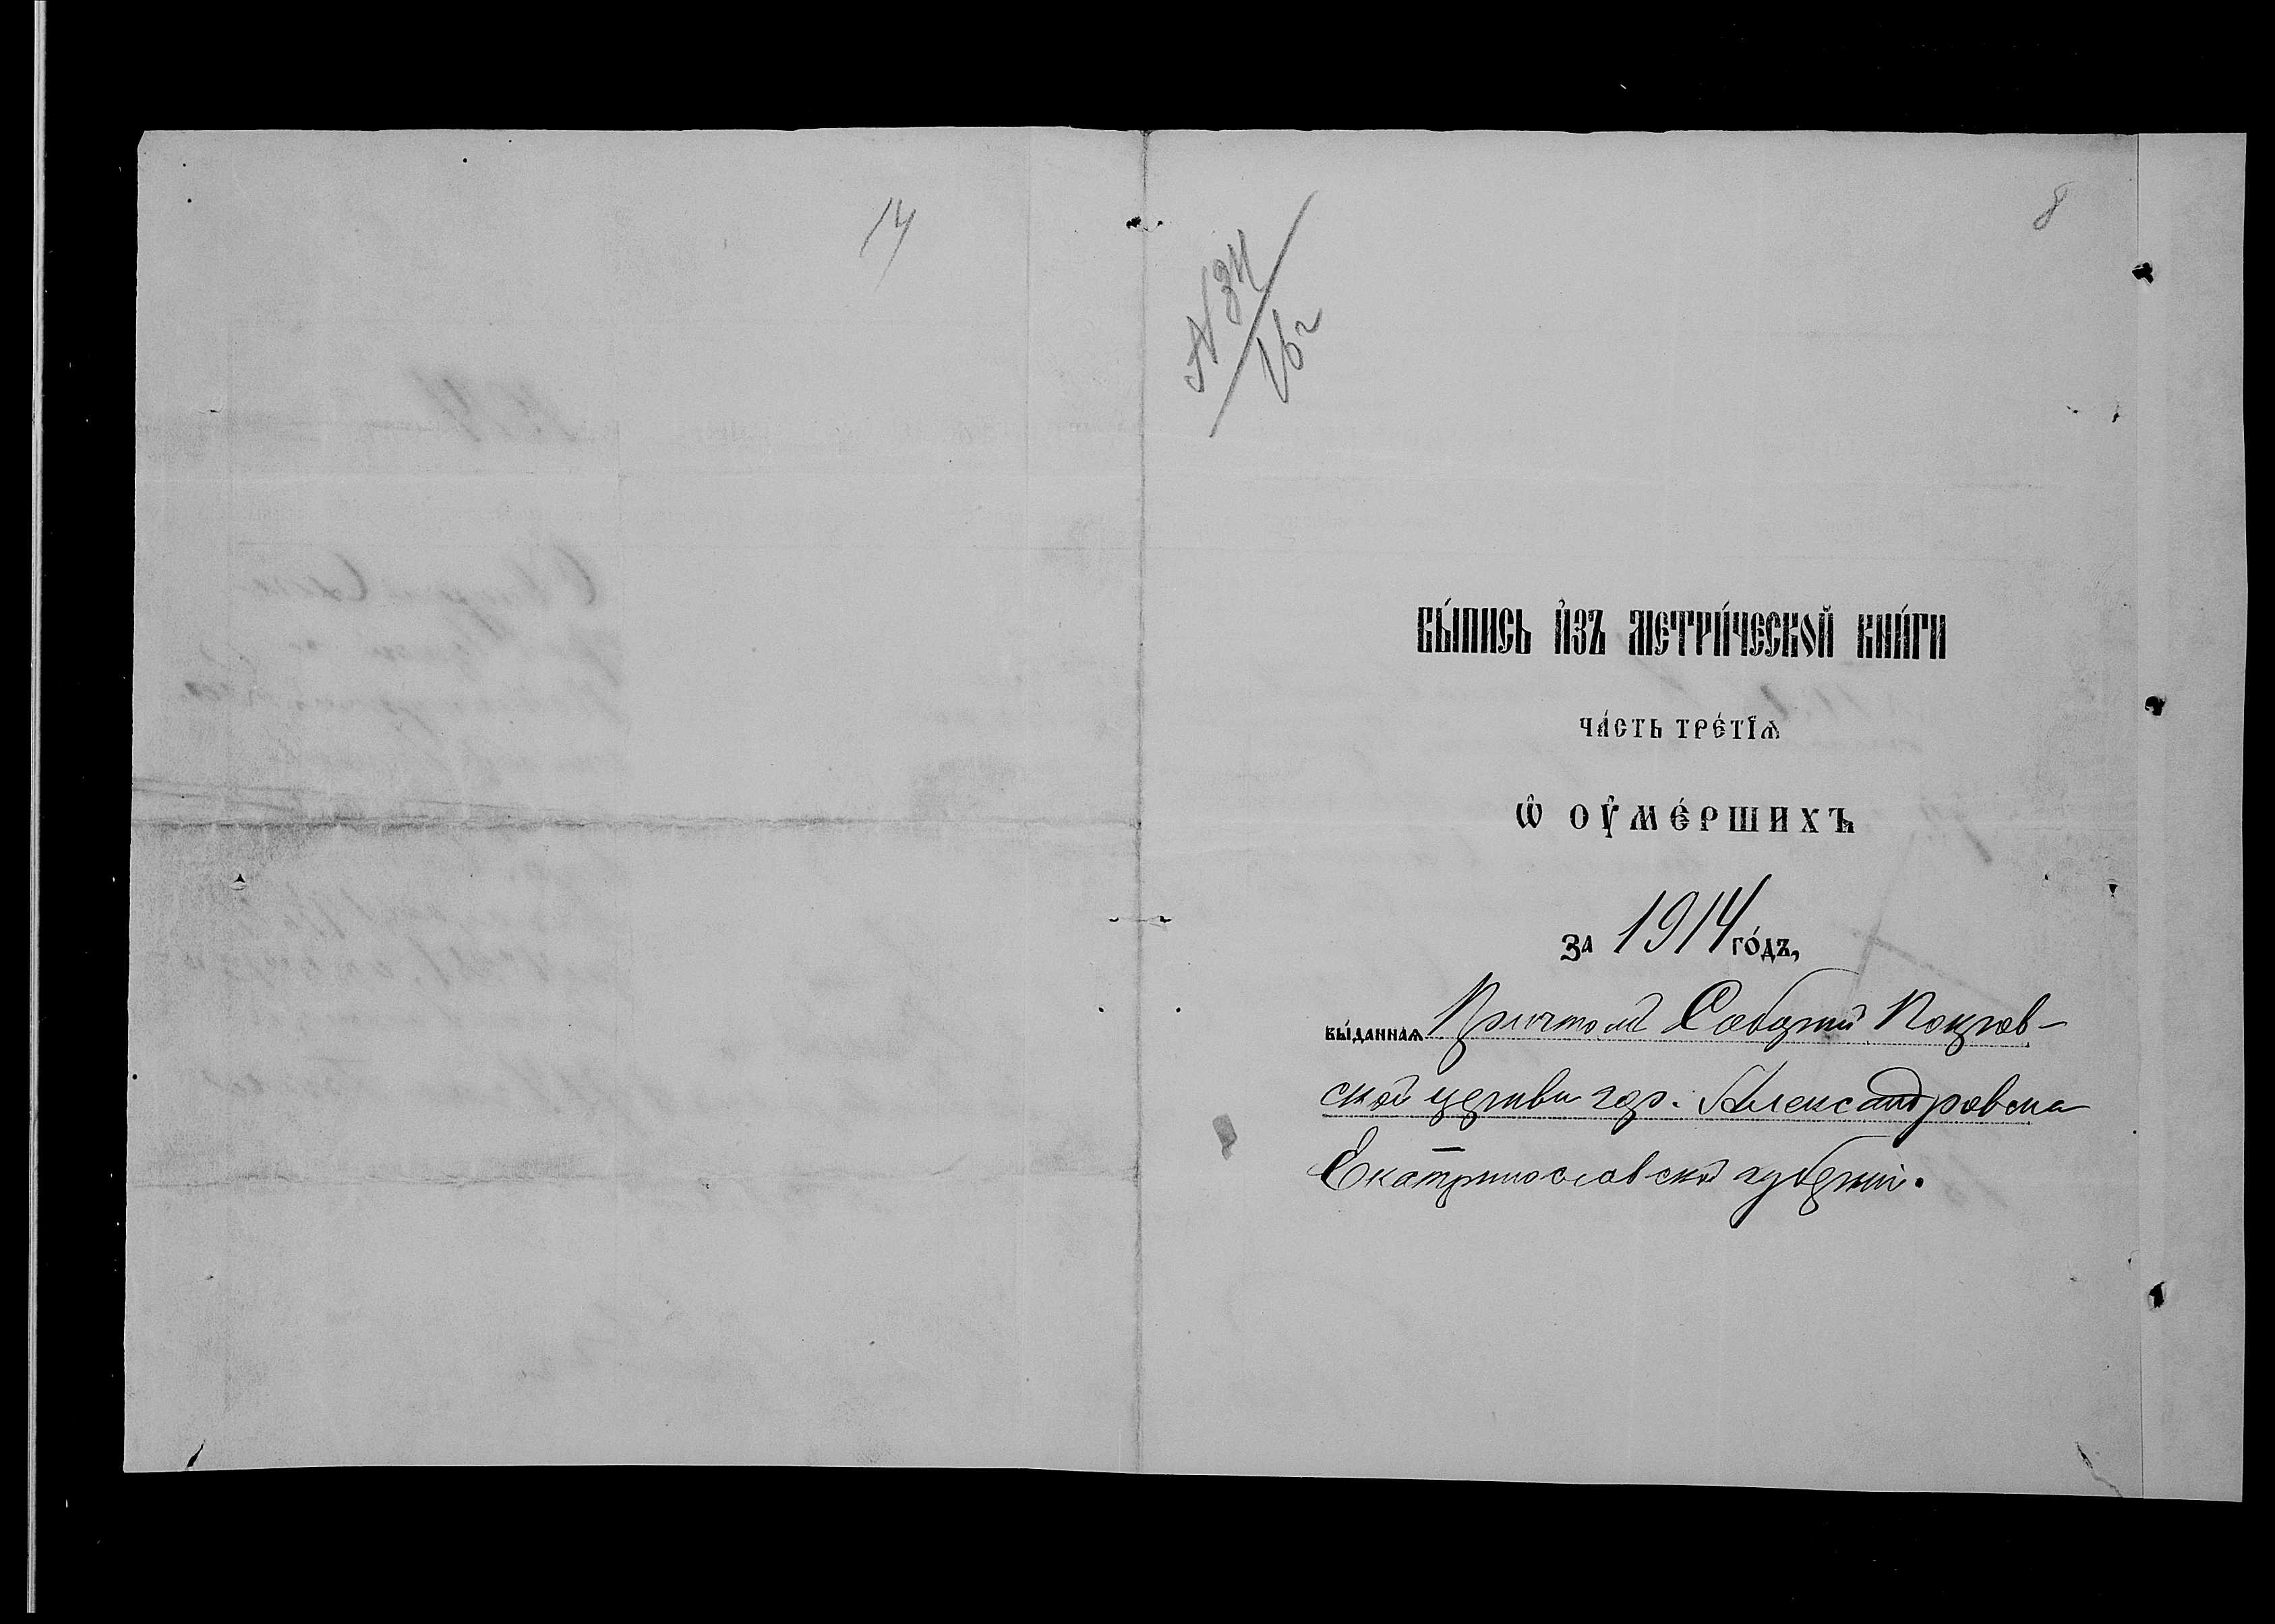 14
8
N 34
16 г
ВЫ́ПИСЬ И҆ЗЪ МЕТРИ́ЧЕСКОЙ КНИ́ГИ
ЧА́СТЬ ТРЕ́ТІѦ
Ѡ҆ ОУ҆МЕ́РШИХЪ
ЗА 1914 ГО́ДЪ,
ВЫ́ДАННАѦ Причтомъ Соборной Покров-
ской церкви гор. Александровска
Екатеринославской губерніи.